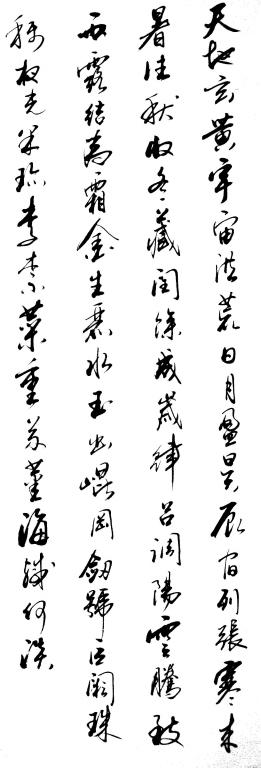 天地玄黃宇宙洪荒日月盈昃辰宿列張寒来
暑往秋收冬藏閏餘成歲律呂調陽雲騰致
雨露結為霜金生麗水玉出崐岡劒號巨闕珠
稱夜光果珍李柰菜重芥薑海鹹河淡